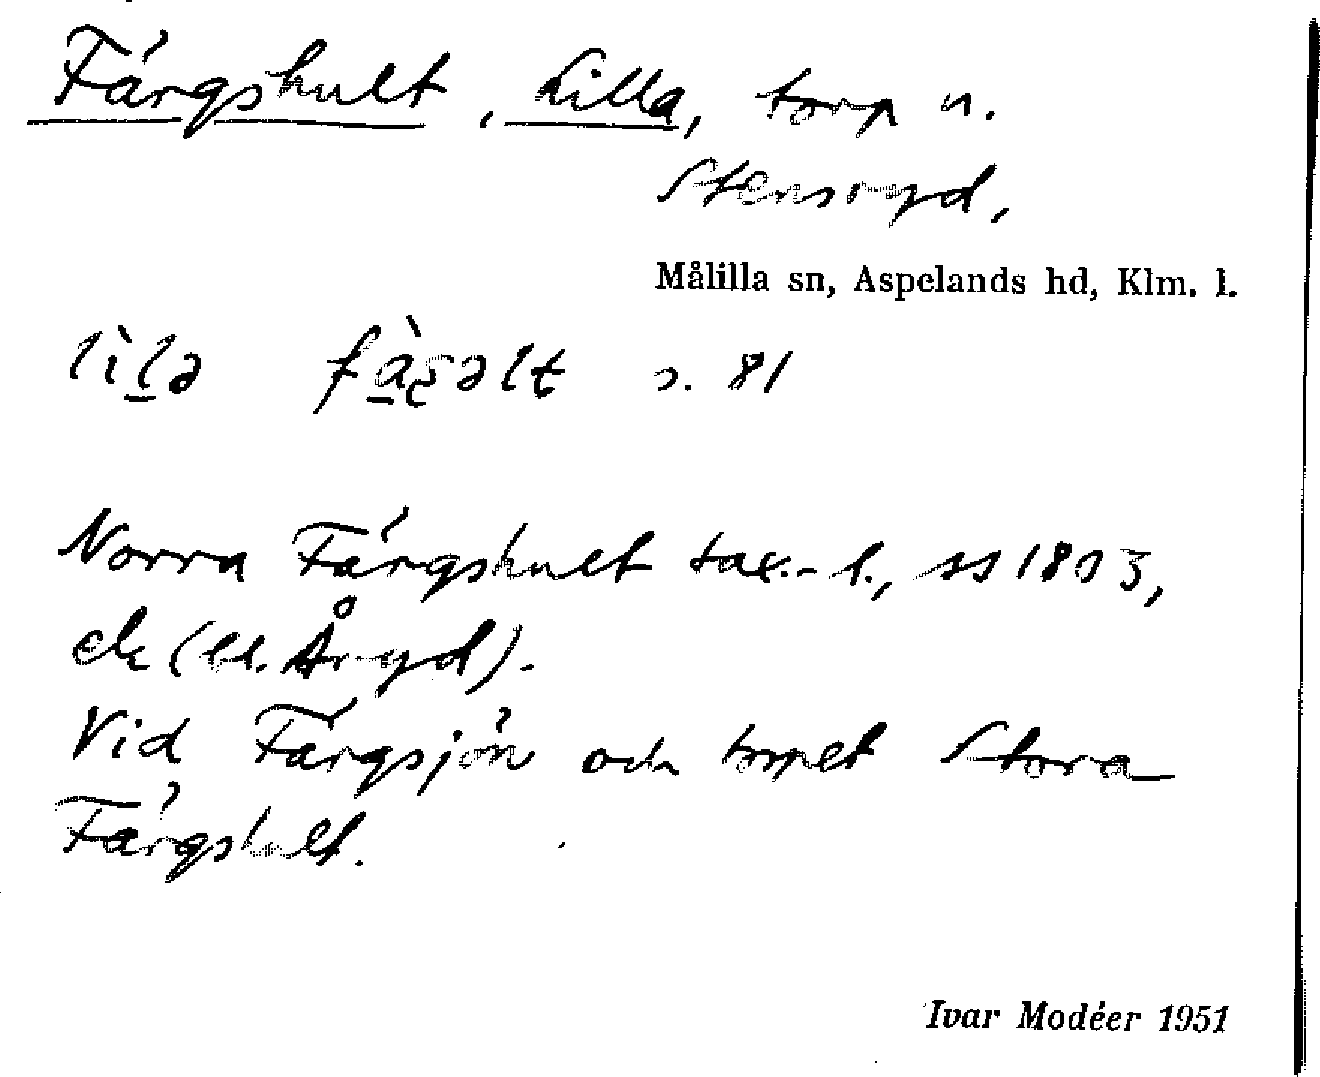 Färgshult, Lilla, torp u.
Stensryd,
Målilla sn, Aspelands hd, Klm. l.
lìlə fàʂəlt s. 81
Norra Färgshult tax.-l., ss 1803,
ek (bl. Åryd).
Vid Färgsjön och torpet Stora
Färgshult.
Ivar Modéer 1951